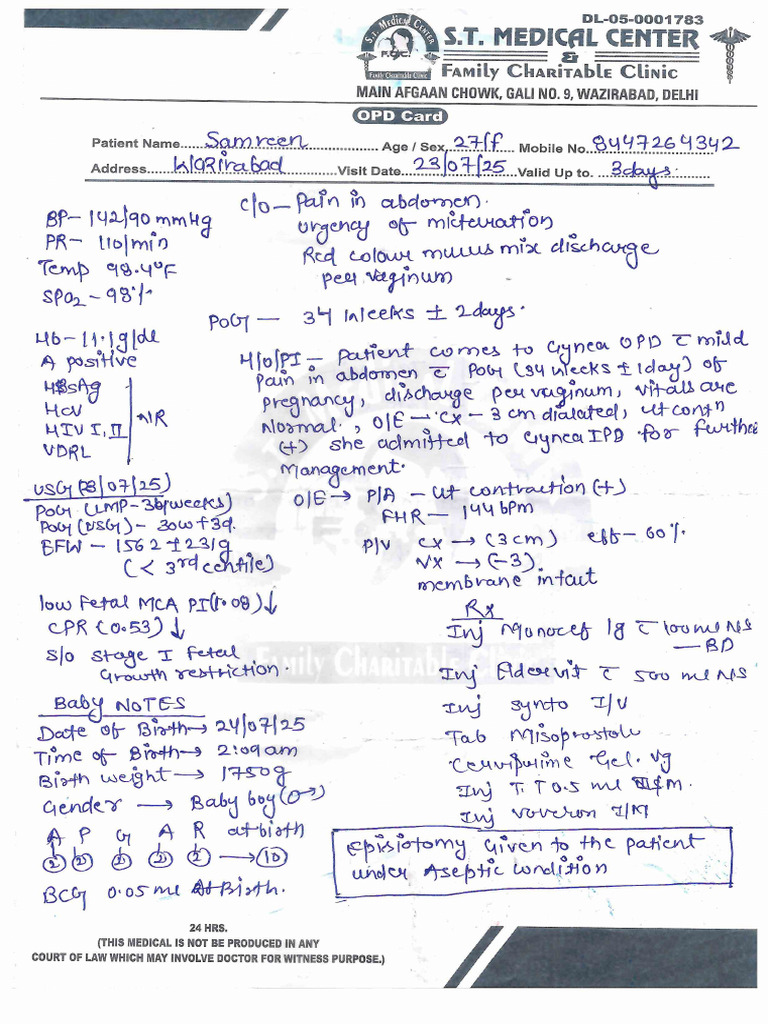 DL-05-0001783
S.T. MEDICAL CENTER
&
Family Charitable Clinic
MAIN AFGAAN CHOWK, GALI NO. 9, WAZIRABAD, DELHI
OPD Card
Patient Name Samreen Age / Sex 27/f Mobile No. 8447264342
Address Wazirabad Visit Date 23/07/25 Valid Up to. 3days.
BP- 142/90 mmHg
PR- 110/min
Temp 98.4°F
SPO2 - 98%
C/O - Pain in abdomen.
Urgency of micturation
Red colour mucus mix discharge
per vaginum
POG - 34 weeks ± 2days.
Hb - 11.1g/dl
A positive
HBsAg
HCV
HIV I, II
VDRL
NR
H/O/PI - Patient comes to Gynea OPD c mild
Pain in abdomen c POG (34 weeks ± 1day) of
pregnancy, discharge per vaginum, vitals are
Normal, O/E - CX - 3 cm dialated, Ut contn
(+) she admitted to Gynea IPD for further
Management.
USG (23/07/25)
POG (LMP-36weeks)
POG (USG) - 30w+3d.
EFW - 1562 ± 231g
(< 3rd centile)
low Fetal MCA PI (1.08) ↓
CPR (0.53) ↓
S/O Stage I Fetal
Growth restriction.
O/E → P/A - Ut contraction (+)
FHR - 144 bpm
P/V CX → (3 cm) eff - 60%
VX → (-3)
membrane intact
Rx
Inj Monocef 1g c 100 ml NS
- BD
Inj Adervit c 500 ml NS
Inj synto I/V
Tab Misoprostole
Cerviprime Gel. vg
Inj T.T 0.5 ml I/M.
Inj Voveron I/M
Baby NOTES
Date of Birth → 24/07/25
Time of Birth → 2:09am
Birth weight → 1750g
Gender → Baby boy (♂)
A P G A R at birth
2 2 2 2 2 → 10
BCG 0.05 ml At Birth.
Episiotomy Given to the patient
under Aseptic condition
24 HRS.
(THIS MEDICAL IS NOT BE PRODUCED IN ANY
COURT OF LAW WHICH MAY INVOLVE DOCTOR FOR WITNESS PURPOSE.)